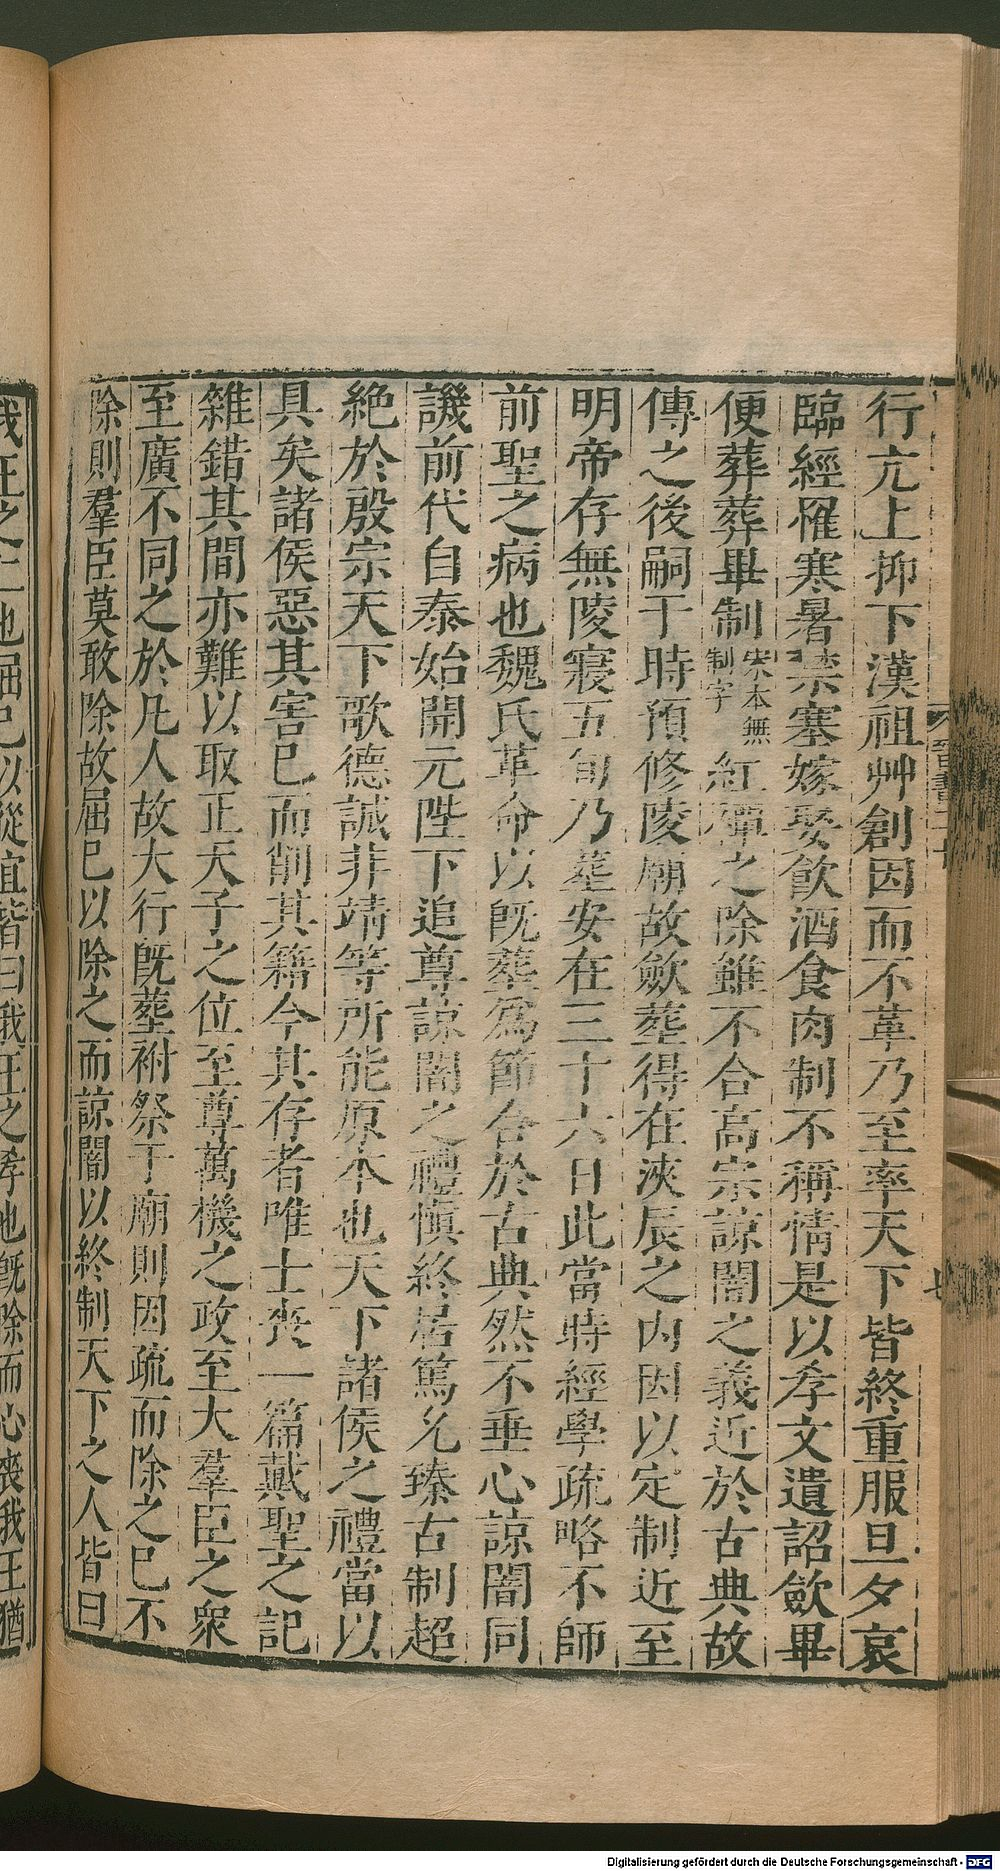 行亢上抑下漢祖艸創因而不革乃至率天下皆終重服旦夕哀
臨經罹寒暑禁塞嫁娶飲酒食肉制不稱情是以孝文遺詔歛畢
便葬葬畢制宋本無制字紅禫之除雖不合高宗諒闇之義近於古典故
傳之後嗣于時預修陵廟故歛葬得在浹辰之内因以定制近至
明帝存無陵寢五旬乃葬安在三十六日此當時經學疏略不師
前聖之病也魏氏革命以旣葬爲節合於古典然不垂心諒闇同
譏前代自泰始開元陛下追尊諒闇之禮愼終居篤允臻古制超
絶於殷宗天下歌德誠非靖等所能原本也天下諸侯之禮當以
具矣諸侯惡其害已而削其籍今其存者唯士喪一篇戴聖之記
雜錯其間亦難以取正天子之位至尊萬機之政至大羣臣之衆
至廣不同之於凡人故大行旣葬祔祭于廟則因疏而除之已不
除則羣臣莫敢除故屈已以除之而諒闇以終制天下之人皆曰
我王之仁也屈已以從宜皆曰我王之孝也旣除而心喪我王猶
晉書二十
七
Digitalisierung gefördert durch die Deutsche Forschungsgemeinschaft - DFG